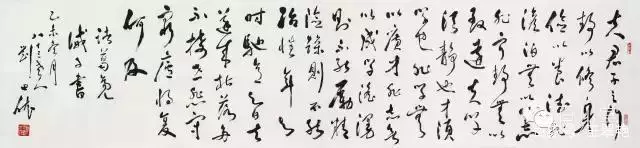 夫君子之行
静以修身
俭以养德非
澹泊无以明志
非宁静无以
致远夫学
须静也才须
学也非学无
以广才非志无
以成学淫慢
则不能励精
险躁则不能
治性年与
时驰意与日去
遂成枯落多
不接世悲守
穷庐将复
何及
诸葛亮
诫子书
乙未冬月